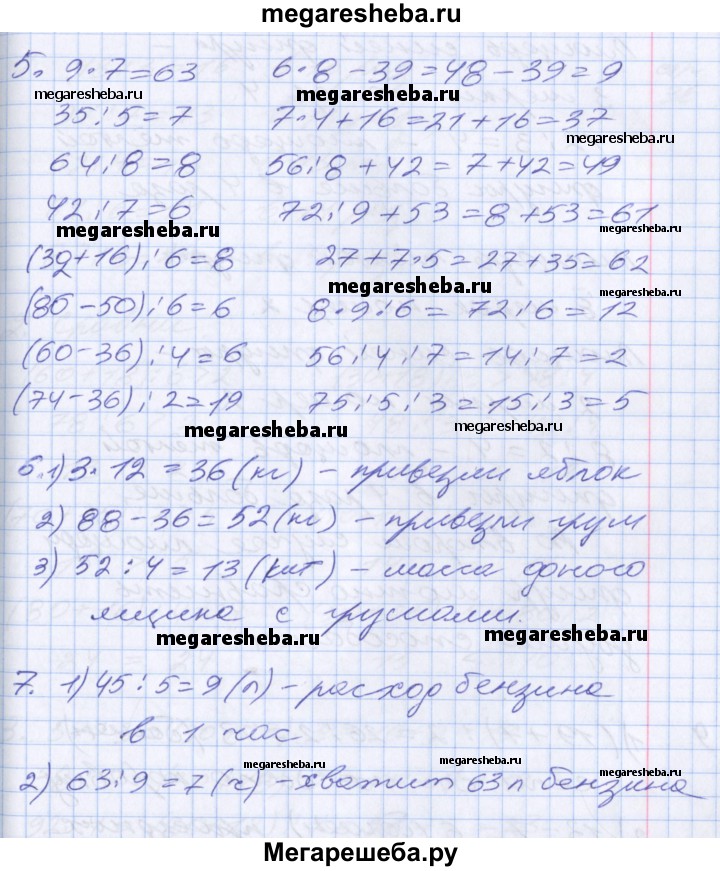 megaresheba.ru
5. 9·7=63    6·8-39=48-39=9
megaresheba.ru    megaresheba.ru
35:5=7    7·4+16=21+16=37
megaresheba.ru
64:8=8    56:8+42=7+42=49
42:7=6    72:9+53=8+53=61
megaresheba.ru    megaresheba.ru
(32+16):6=8    27+7·5=27+35=62
megaresheba.ru    megaresheba.ru
(86-50):6=6    8·9:6=72:6=12
(60-36):4=6    56:4:7=14:7=2
(74-36):2=19    75:5:3=15:3=5
megaresheba.ru    megaresheba.ru
6. 1) 3·12=36(кг) - привезли яблок
2) 88-36=52(кг) - привезли груш
3) 52:4=13(кг) - масса одного
ящика с грушами.
megaresheba.ru    megaresheba.ru
7. 1) 45:5=9(л) - расход бензина
в 1 час
megaresheba.ru
2) 63:9=7(ч) - хватит 63 л бензина
megaresheba.ru    megaresheba.ru
Мегарешеба.ру